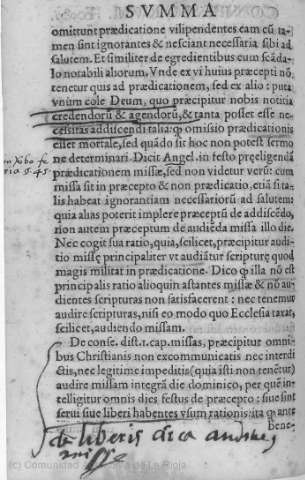 SVMMA
omittunt prædicatione vilipendentes eam cũ ta-
men sint ignorantes & nesciant necessaria sibi ad
salutem. Et similiter de egredientibus cum scãda-
lo notabili aliorum, Vnde ex vi huius præcepti nõ
tenetur quis ad prædicationem, sed ex alio: puta
vnũm cole Deum, quo præcipitur nobis notitia
credendorũ & agendorũ, & tanta posset esse ne-
cessitas addiscendi talia: q omissio prædicationis
esset mortale, sed quãdo sit hoc non potest sermo
ne determinari. Dicit Angel. in festo præeligendã
prædicationem missæ, sed non videtur verũ: cum
missa sit in præcepto & non prædicatio, etiã si ta-
lis habeat ignorantiam necessariorũ ad salutem:
quia alias poterit implere præceptũ de addiscẽdo,
non autem præceptum de audiẽda missa illo die.
Nec cogit sua ratio, quia, scilicet, præcipitur audi-
tio missæ principaliter vt audiãtur scripturę quod
magis militat in prædicatione. Dico q illa nõ est
principalis ratio alioquin astantes missæ & nõ au-
dientes scripturas non satisfacerent: nec tenemur
audire scripturas, nisi eo modo quo Ecclesia taxat,
scilicet, audiendo missam.
De conse. dist. 1. cap. missas, præcipitur omni-
bus Christianis non excommunicatis nec interdi
ctis, nec legitime impeditis (quia isti non tenẽtur)
audire missam integrã die dominico, per quẽ in-
telligitur omnis dies festus de præcepto: siue sint
serui siue liberi habentes vsum rationis ita q ante
bene-
de liberis dico audire
missã
(c) Comunidad de La Rioja